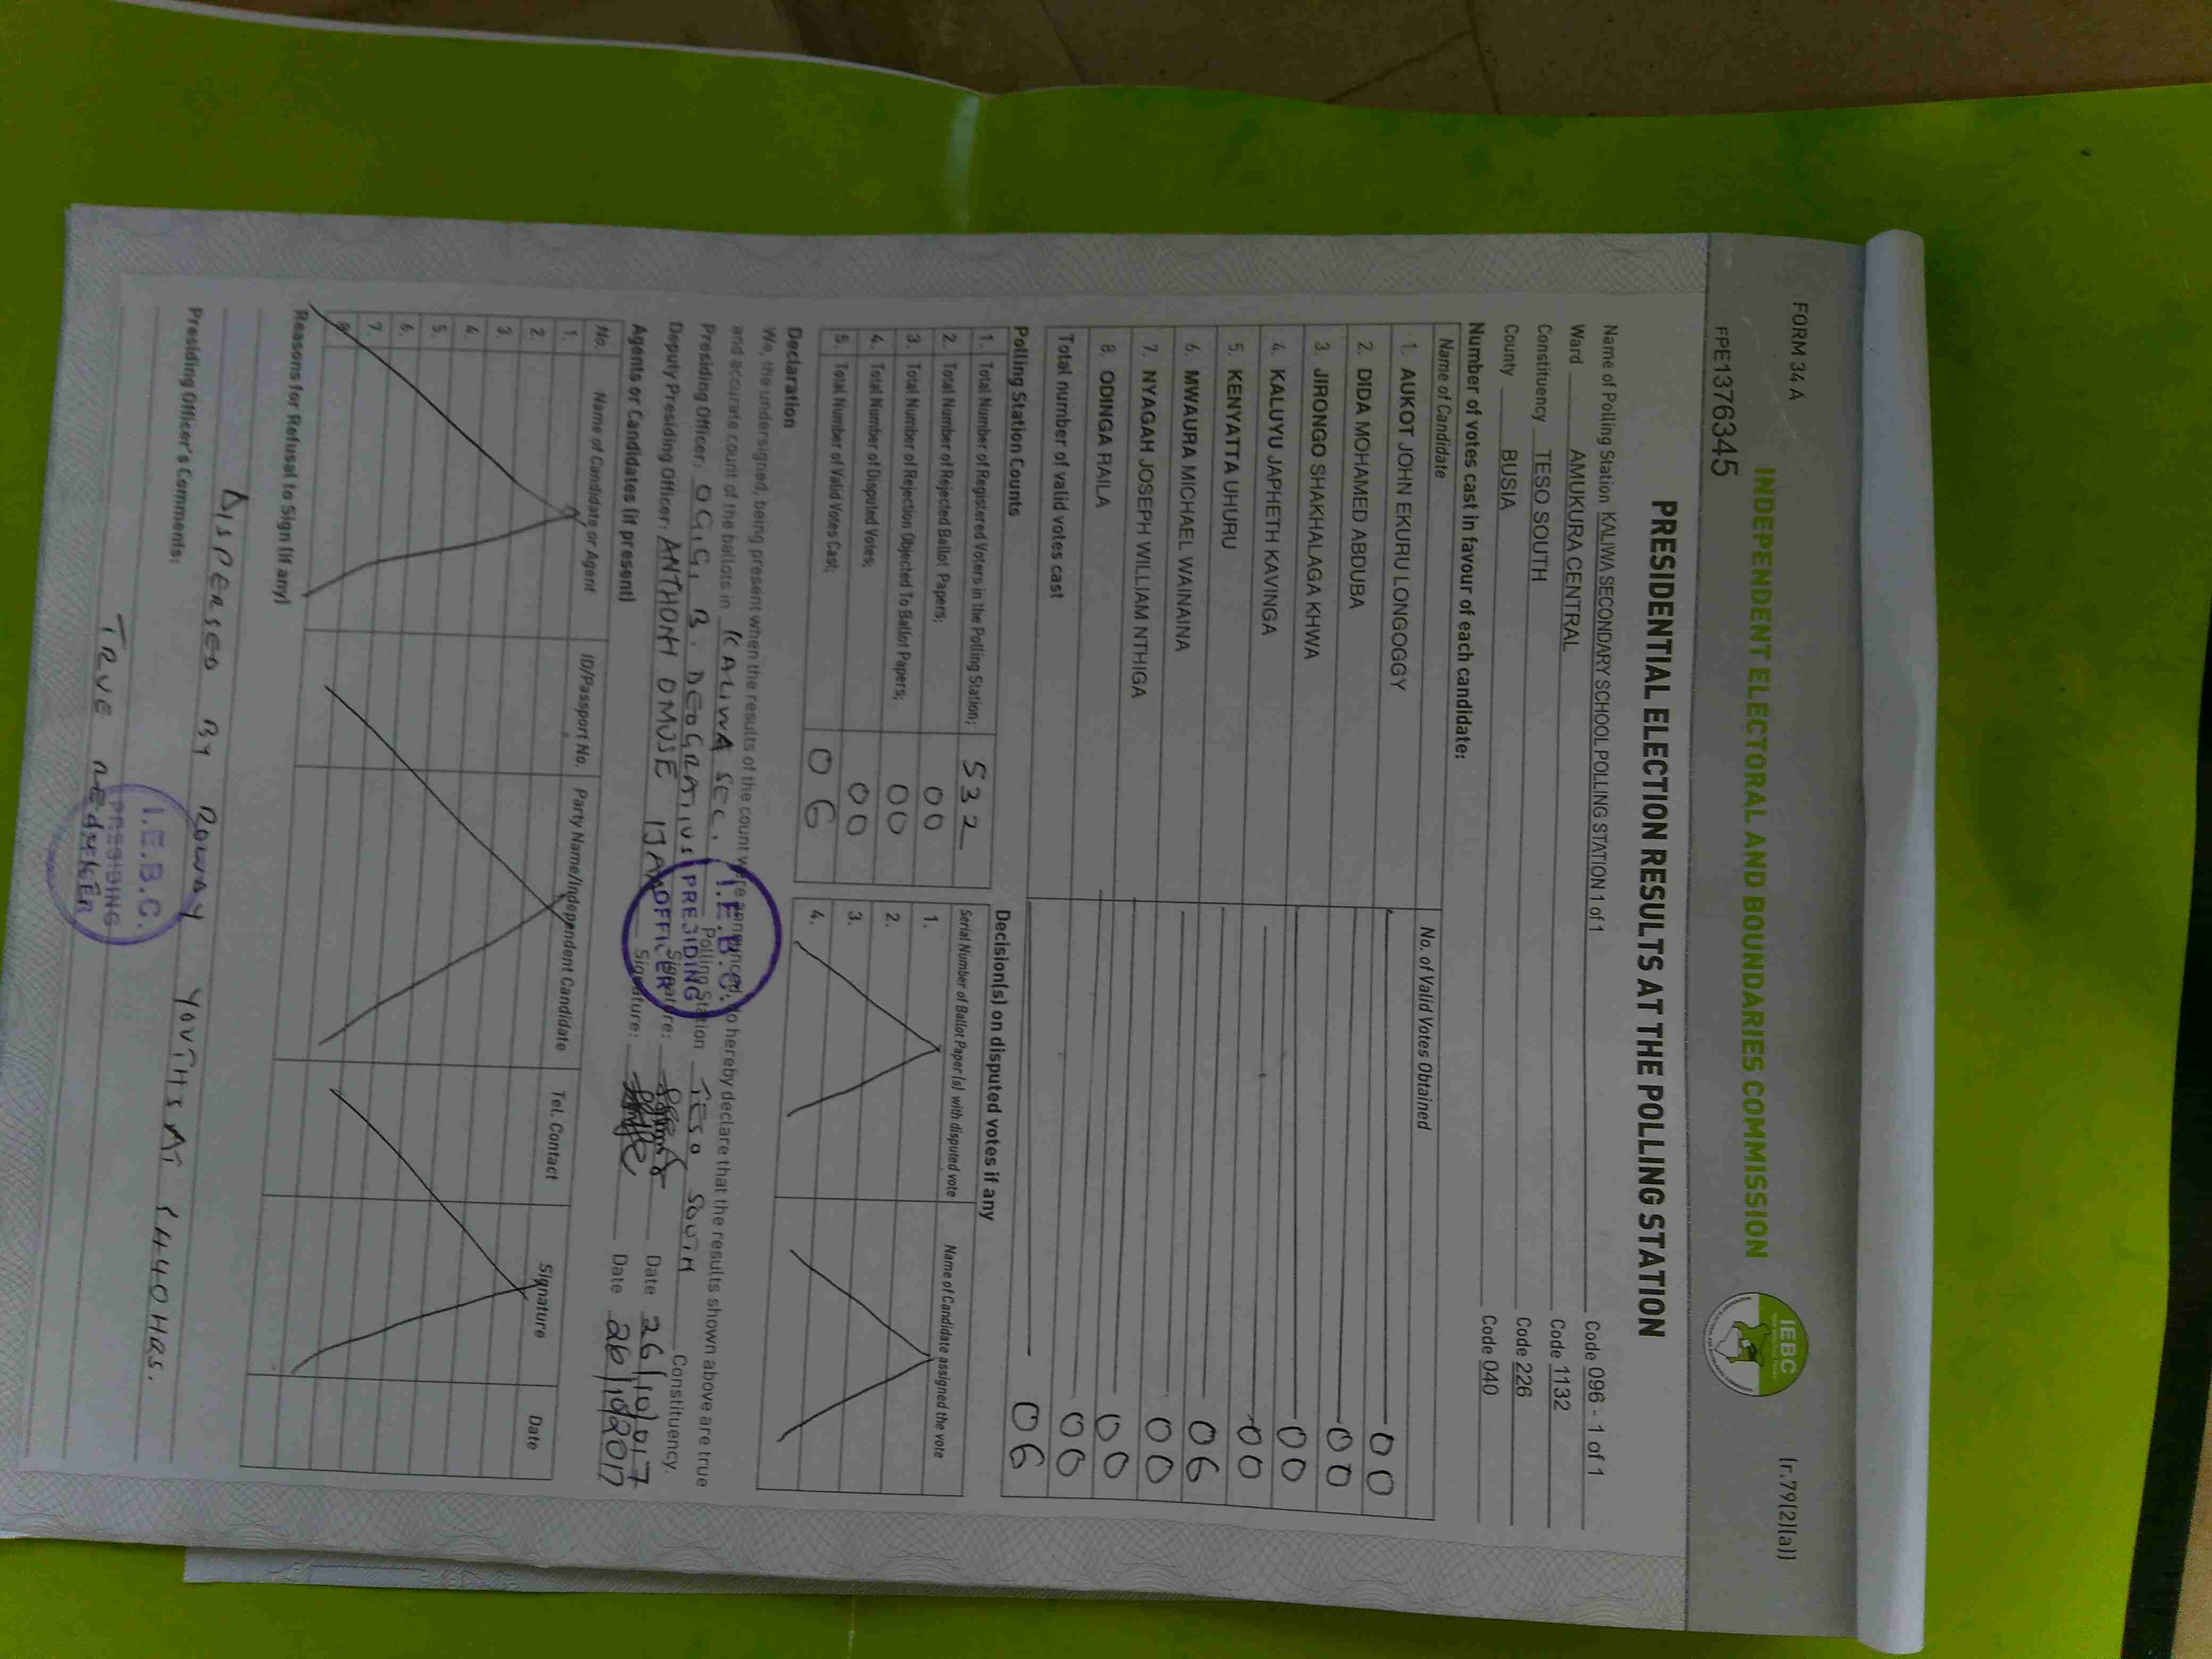 FORM 34A
(r.79(2)(a))
INDEPENDENT ELECTORAL AND BOUNDARIES COMMISSION
IEBC
FPE1376345
PRESIDENTIAL ELECTION RESULTS AT THE POLLING STATION
Name of Polling Station KALIWA SECONDARY SCHOOL POLLING STATION 1 of 1 Code 096 - 1 of 1
Ward AMUKURA CENTRAL Code 1132
Constituency TESO SOUTH Code 226
County BUSIA Code 040
Number of votes cast in favour of each candidate:
Name of Candidate No. of Valid Votes Obtained
1. AUKOT JOHN EKURU LONGOGGY 00
2. DIDA MOHAMED ABDUBA 00
3. JIRONGO SHAKHALAGA KHWA 00
4. KALUYU JAPHETH KAVINGA 00
5. KENYATTA UHURU 06
6. MWAURA MICHAEL WAINAINA 00
7. NYAGAH JOSEPH WILLIAM NTHIGA 00
8. ODINGA RAILA 00
Total number of valid votes cast 06
Polling Station Counts
1. Total Number of Registered Voters in the Polling Station; 532
2. Total Number of Rejected Ballot Papers; 00
3. Total Number of Rejection Objected To Ballot Papers; 00
4. Total Number of Disputed Votes; 00
5. Total Number of Valid Votes Cast; 06
Decision(s) on disputed votes if any
Serial Number of Ballot Paper(s) with disputed vote Name of Candidate assigned the vote
1.
2.
3.
4.
Declaration
We, the undersigned, being present when the results of the count were announced, do hereby declare that the results shown above are true
and accurate count of the ballots in KALIWA SEC. Polling Station TESO SOUTH Constituency.
Presiding Officer: OGIGI B. DEOGRATIUS Signature: Date 26/10/017
Deputy Presiding Officer: ANTHONY OMUSE IJAA Signature: Date 26/10/2017
I.E.B.C.
PRESIDING
OFFICER
Agents or Candidates (if present)
No. Name of Candidate or Agent ID/Passport No. Party Name/Independent Candidate Tel. Contact Signature Date
1.
2.
3.
4.
5.
6.
7.
8.
Reasons for Refusal to Sign (if any)
DISPERSED BY ROWDY YOUTHS AT 1440HRS.
Presiding Officer's Comments:
TRUE
I.E.B.C.
PRESIDING
OFFICER